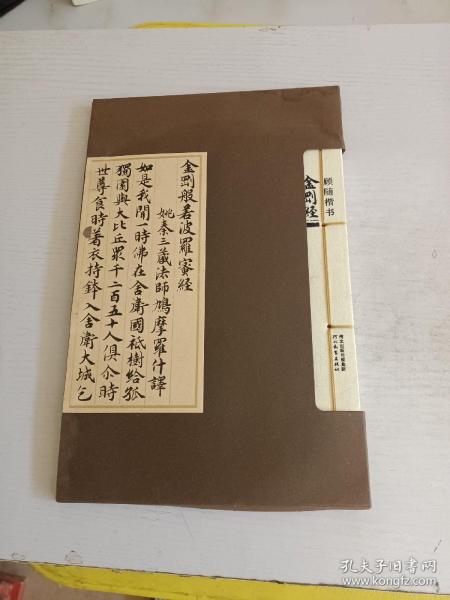 金剛般若波羅蜜經
姚秦三藏法師鳩摩羅什譯
如是我聞一時佛在舍衛國祇樹給孤
獨園與大比丘眾千二百五十人俱尒時
世尊食時著衣持鉢入舍衛大城乞
顾随楷书
金剛經
孔夫子旧书网
www.kongfz.com